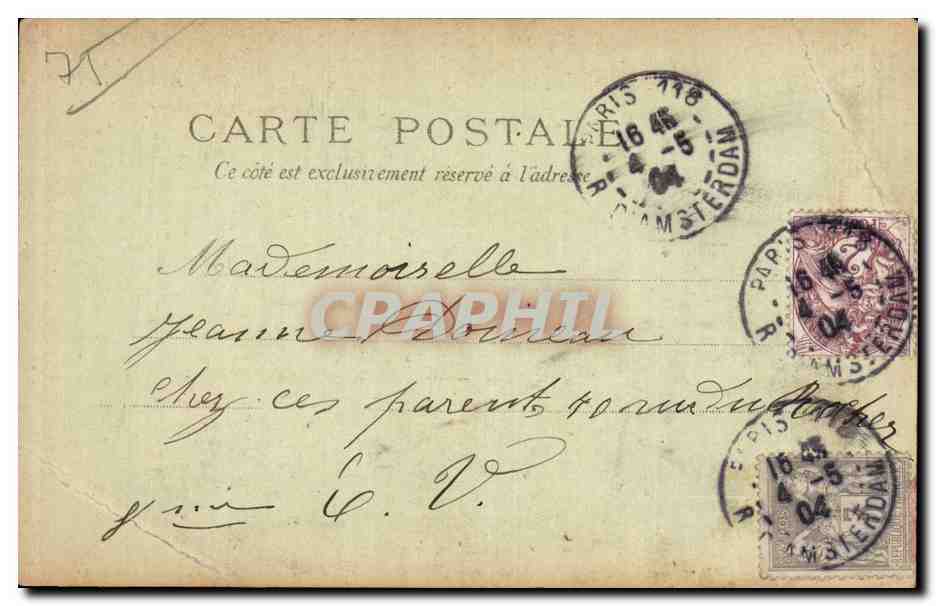 75
CARTE POSTALE
Ce côté est exclusivement réservé à l'adresse
PARIS 118
16 45
4 -5
04
R. D'AMSTERDAM
Mademoiselle
CARTE
CPAPHIL
Jeanne
chez ces parents 40 rue du Rocher
E. V.
PARIS 118
16 45
4 -5
04
R. D'AMSTERDAM
PARIS
16 45
4 -5
04
R. D'AMSTERDAM